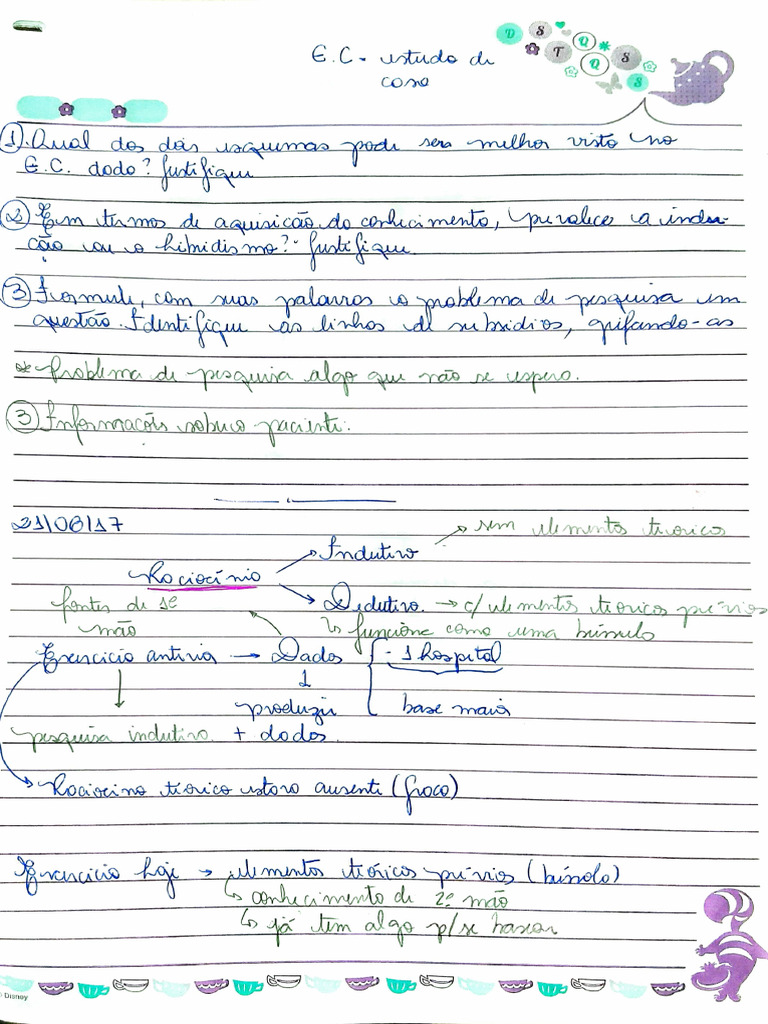 D S T Q Q S S
E.C - estudo de
caso
1. Qual dos dois esquemas pode ser melhor visto no
E.C. dado? Justifique
2 Em termos de aquisição do conhecimento, prevalece a indu-
ção ou o hibridismo? Justifique.
3 Formule, com suas palavras o problema de pesquisa em
questão. Identifique as linhas de subsídios, grifando-as
* Problema de pesquisa algo que não se espera.
3 Informações sobre o paciente.
21/08/17
→ sem elementos teóricos
→ Indutivo
Raciocínio
→ Dedutivo → c/ elementos teóricos prévios
↳ funcione como uma bússola
fontes de 1ª
mão
Exercício anterior → Dados { - 1 hospital
↓ produzir base maior
pesquisa indutiva + dados.
→ Raciocino teórico estara ausente (fraco)
Exercício hoje → elementos teóricos prévios (bússola)
↳ conhecimento de 2ª mão
↳ já tem algo p/ se basear
© Disney